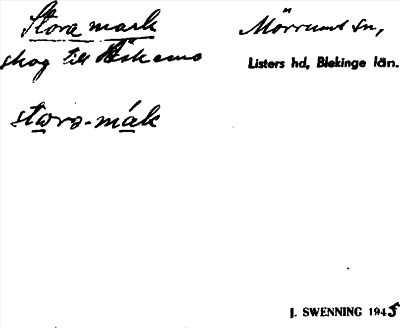 Stora mark
Mörrums sn,
skog till
Listers hd, Blekinge län.
stora-mák
J. SWENNING 1945